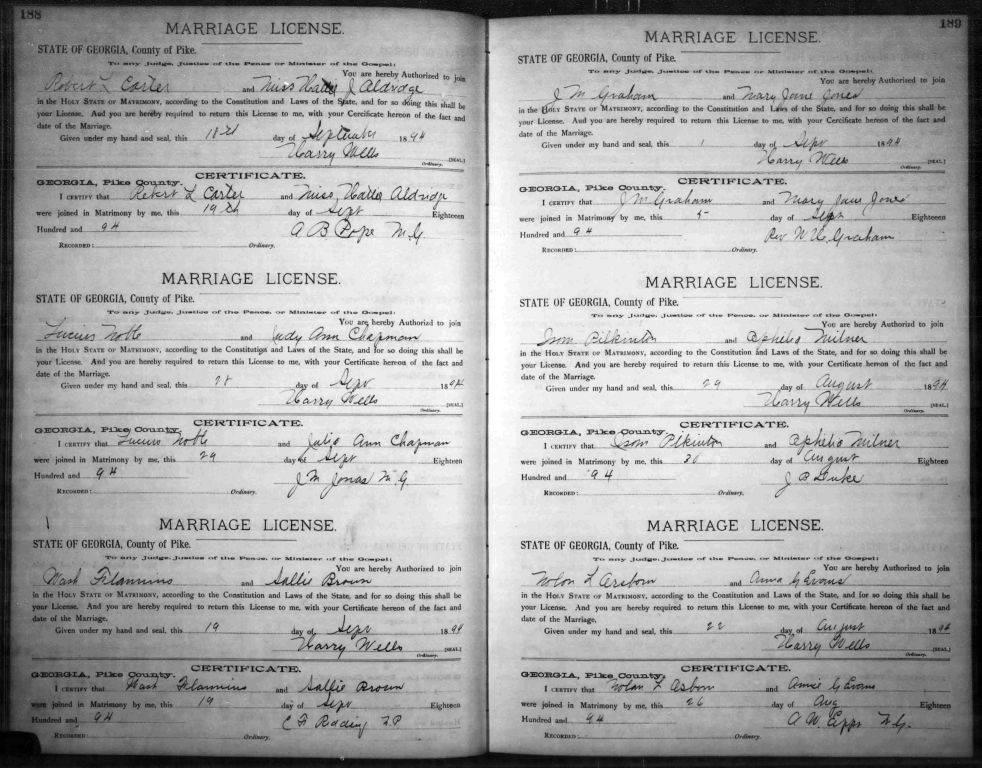 188
MARRIAGE LICENSE.
STATE OF GEORGIA, County of Pike.
To any Judge, Justice of the Peace or Minister of the Gospel:
You are hereby Authorized to join
Robert L Carter and Miss Hattie J Aldridge
in the HOLY STATE OF MATRIMONY, according to the Constitution and Laws of the State, and for so doing this shall be
your License. And you are hereby required to return this License to me, with your Certificate hereon of the fact and
date of the Marriage.
Given under my hand and seal, this 18th day of September 1894
Harry Wells [SEAL.]
Ordinary.
CERTIFICATE.
GEORGIA, Pike County.
I CERTIFY that Robert L Carter and Miss Hattie Aldridge
were joined in Matrimony by me, this 19th day of Sept Eighteen
Hundred and 94 A B Pope M.G.
RECORDED: Ordinary.
MARRIAGE LICENSE.
STATE OF GEORGIA, County of Pike.
To any Judge, Justice of the Peace, or Minister of the Gospel:
You are hereby Authorized to join
Lucius Noble and Judy Ann Chapman
in the HOLY STATE OF MATRIMONY, according to the Constitution and Laws of the State, and for so doing this shall be
your License. And you are hereby required to return this License to me, with your Certificate hereon of the fact and
date of the Marriage.
Given under my hand and seal, this 28 day of Sept 1894
Harry Wells [SEAL.]
Ordinary.
CERTIFICATE.
GEORGIA, Pike County.
I CERTIFY that Lucius Noble and Julia Ann Chapman
were joined in Matrimony by me, this 29 day of Sept Eighteen
Hundred and 94 J M Jonas M.G.
RECORDED: Ordinary.
MARRIAGE LICENSE.
STATE OF GEORGIA, County of Pike.
To any Judge, Justice of the Peace, or Minister of the Gospel:
You are hereby Authorized to join
Wash and Sallie Brown
in the HOLY STATE OF MATRIMONY, according to the Constitution and Laws of the State, and for so doing this shall be
your License. And you are hereby required to return this License to me, with your Certificate hereon of the fact and
date of the Marriage.
Given under my hand and seal, this 19 day of Sept 1894
Harry Wells [SEAL.]
Ordinary.
CERTIFICATE.
GEORGIA, Pike County.
I CERTIFY that Wash and Sallie Brown
were joined in Matrimony by me, this 19 day of Sept Eighteen
Hundred and 94 C F J.P.
RECORDED: Ordinary.
189
MARRIAGE LICENSE.
STATE OF GEORGIA, County of Pike.
To any Judge, Justice of the Peace or Minister of the Gospel:
You are hereby Authorized to join
J M Graham and Mary Jane Jones
in the HOLY STATE OF MATRIMONY, according to the Constitution and Laws of the State, and for so doing this shall be
your License. And you are hereby required to return this License to me, with your Certificate hereon of the fact and
date of the Marriage.
Given under my hand and seal, this 1 day of Sept 1894
Harry Wells [SEAL.]
Ordinary.
CERTIFICATE.
GEORGIA, Pike County.
I CERTIFY that J M Graham and Mary Jane Jones
were joined in Matrimony by me, this 5 day of Sept Eighteen
Hundred and 94 Rev W H Graham
RECORDED: Ordinary.
MARRIAGE LICENSE.
STATE OF GEORGIA, County of Pike.
To any Judge, Justice of the Peace, or Minister of the Gospel:
You are hereby Authorized to join
Isom Pilkinton and Ophelia Milner
in the HOLY STATE OF MATRIMONY, according to the Constitution and Laws of the State, and for so doing this shall be
your License. And you are hereby required to return this License to me, with your Certificate hereon of the fact and
date of the Marriage.
Given under my hand and seal, this 29 day of August 1894
Harry Wells [SEAL.]
Ordinary.
CERTIFICATE.
GEORGIA, Pike County.
I CERTIFY that Isom Pilkinton and Ophelia Milner
were joined in Matrimony by me, this 30 day of August Eighteen
Hundred and 94 J P Duke
RECORDED: Ordinary.
MARRIAGE LICENSE.
STATE OF GEORGIA, County of Pike.
To any Judge, Justice of the Peace, or Minister of the Gospel:
You are hereby Authorized to join
Nolon F and Anna G Evans
in the HOLY STATE OF MATRIMONY, according to the Constitution and Laws of the State, and for so doing this shall be
your License. And you are hereby required to return this License to me, with your Certificate hereon of the fact and
date of the Marriage.
Given under my hand and seal, this 22 day of August 1894
Harry Wells [SEAL.]
Ordinary.
CERTIFICATE.
GEORGIA, Pike County.
I CERTIFY that Nolan F Asborn and Annie G Evans
were joined in Matrimony by me, this 26 day of Aug Eighteen
Hundred and 94 A W Epps M.G.
RECORDED: Ordinary.